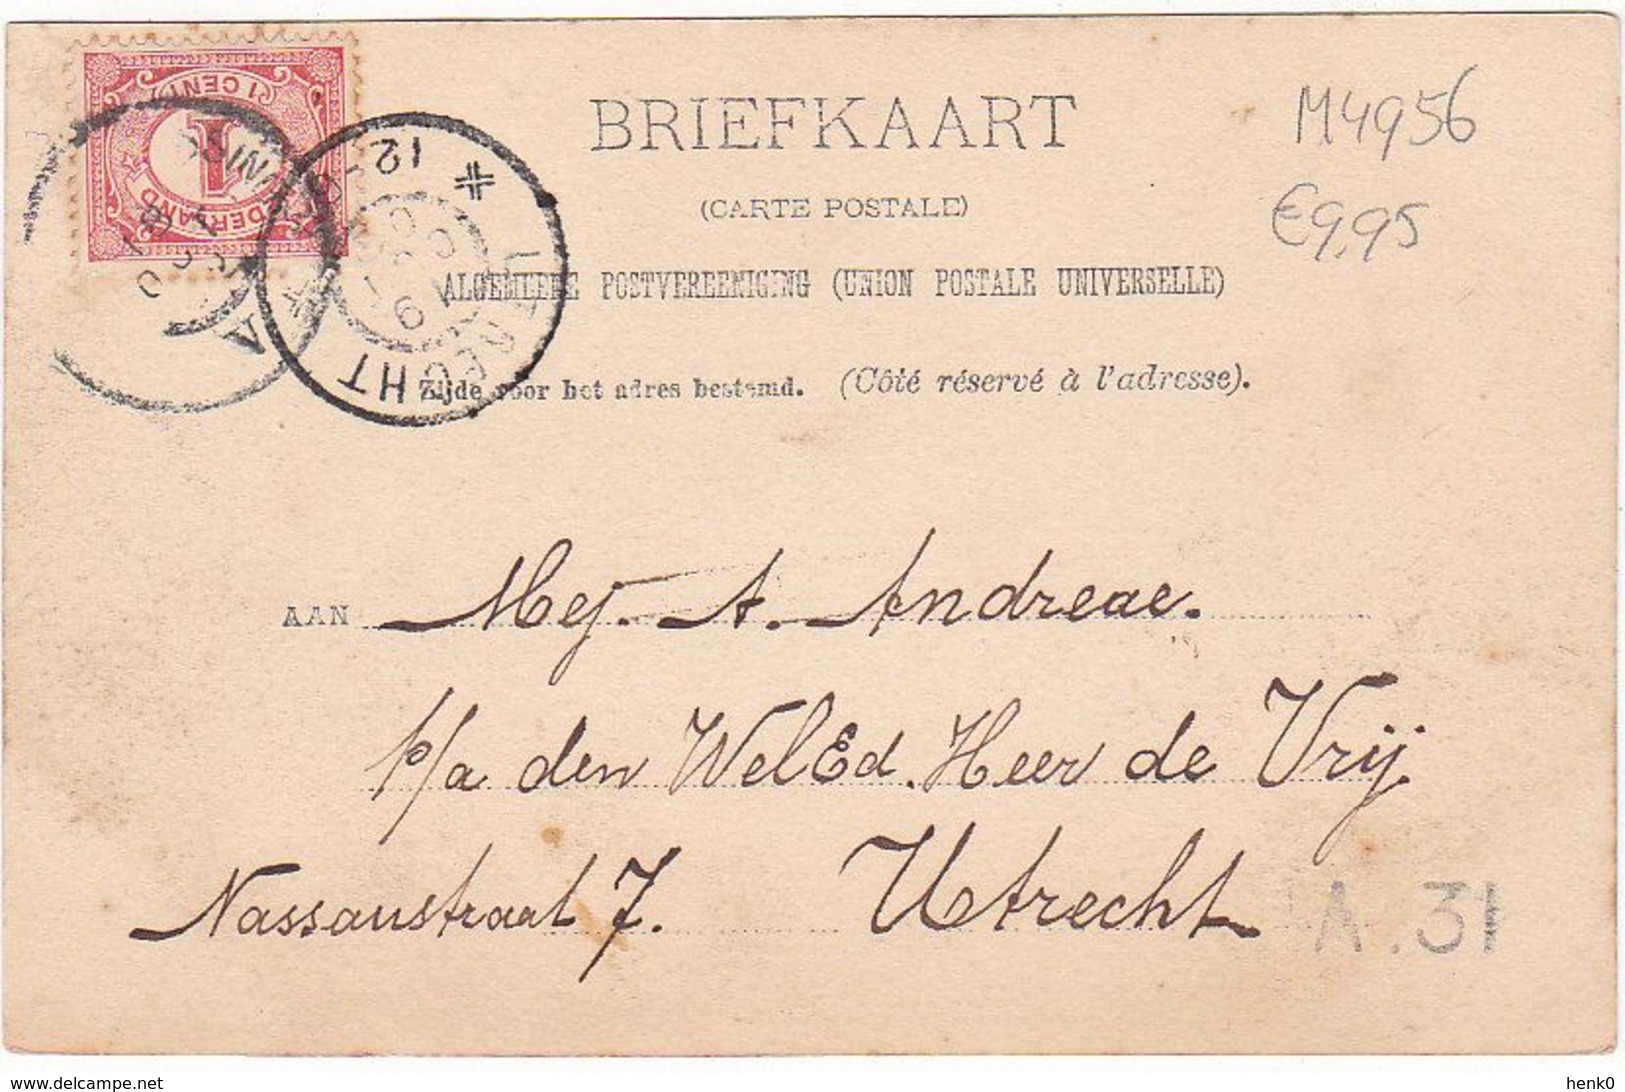 1 CENT
1
NEDERLAND
BRIEFKAART
(CARTE POSTALE)
M4956
€9,95
ALGEMEENE POSTVEREENIGING (UNION POSTALE UNIVERSELLE)
Zijde voor het adres bestemd. (Côté réservé à l'adresse).
UTRECHT
12
AAN Mej. A. Andreae.
p/a den WelEd. Heer de Vrij.
Nassaustraat 7. Utrecht
A.31
www.delcampe.net
henk0